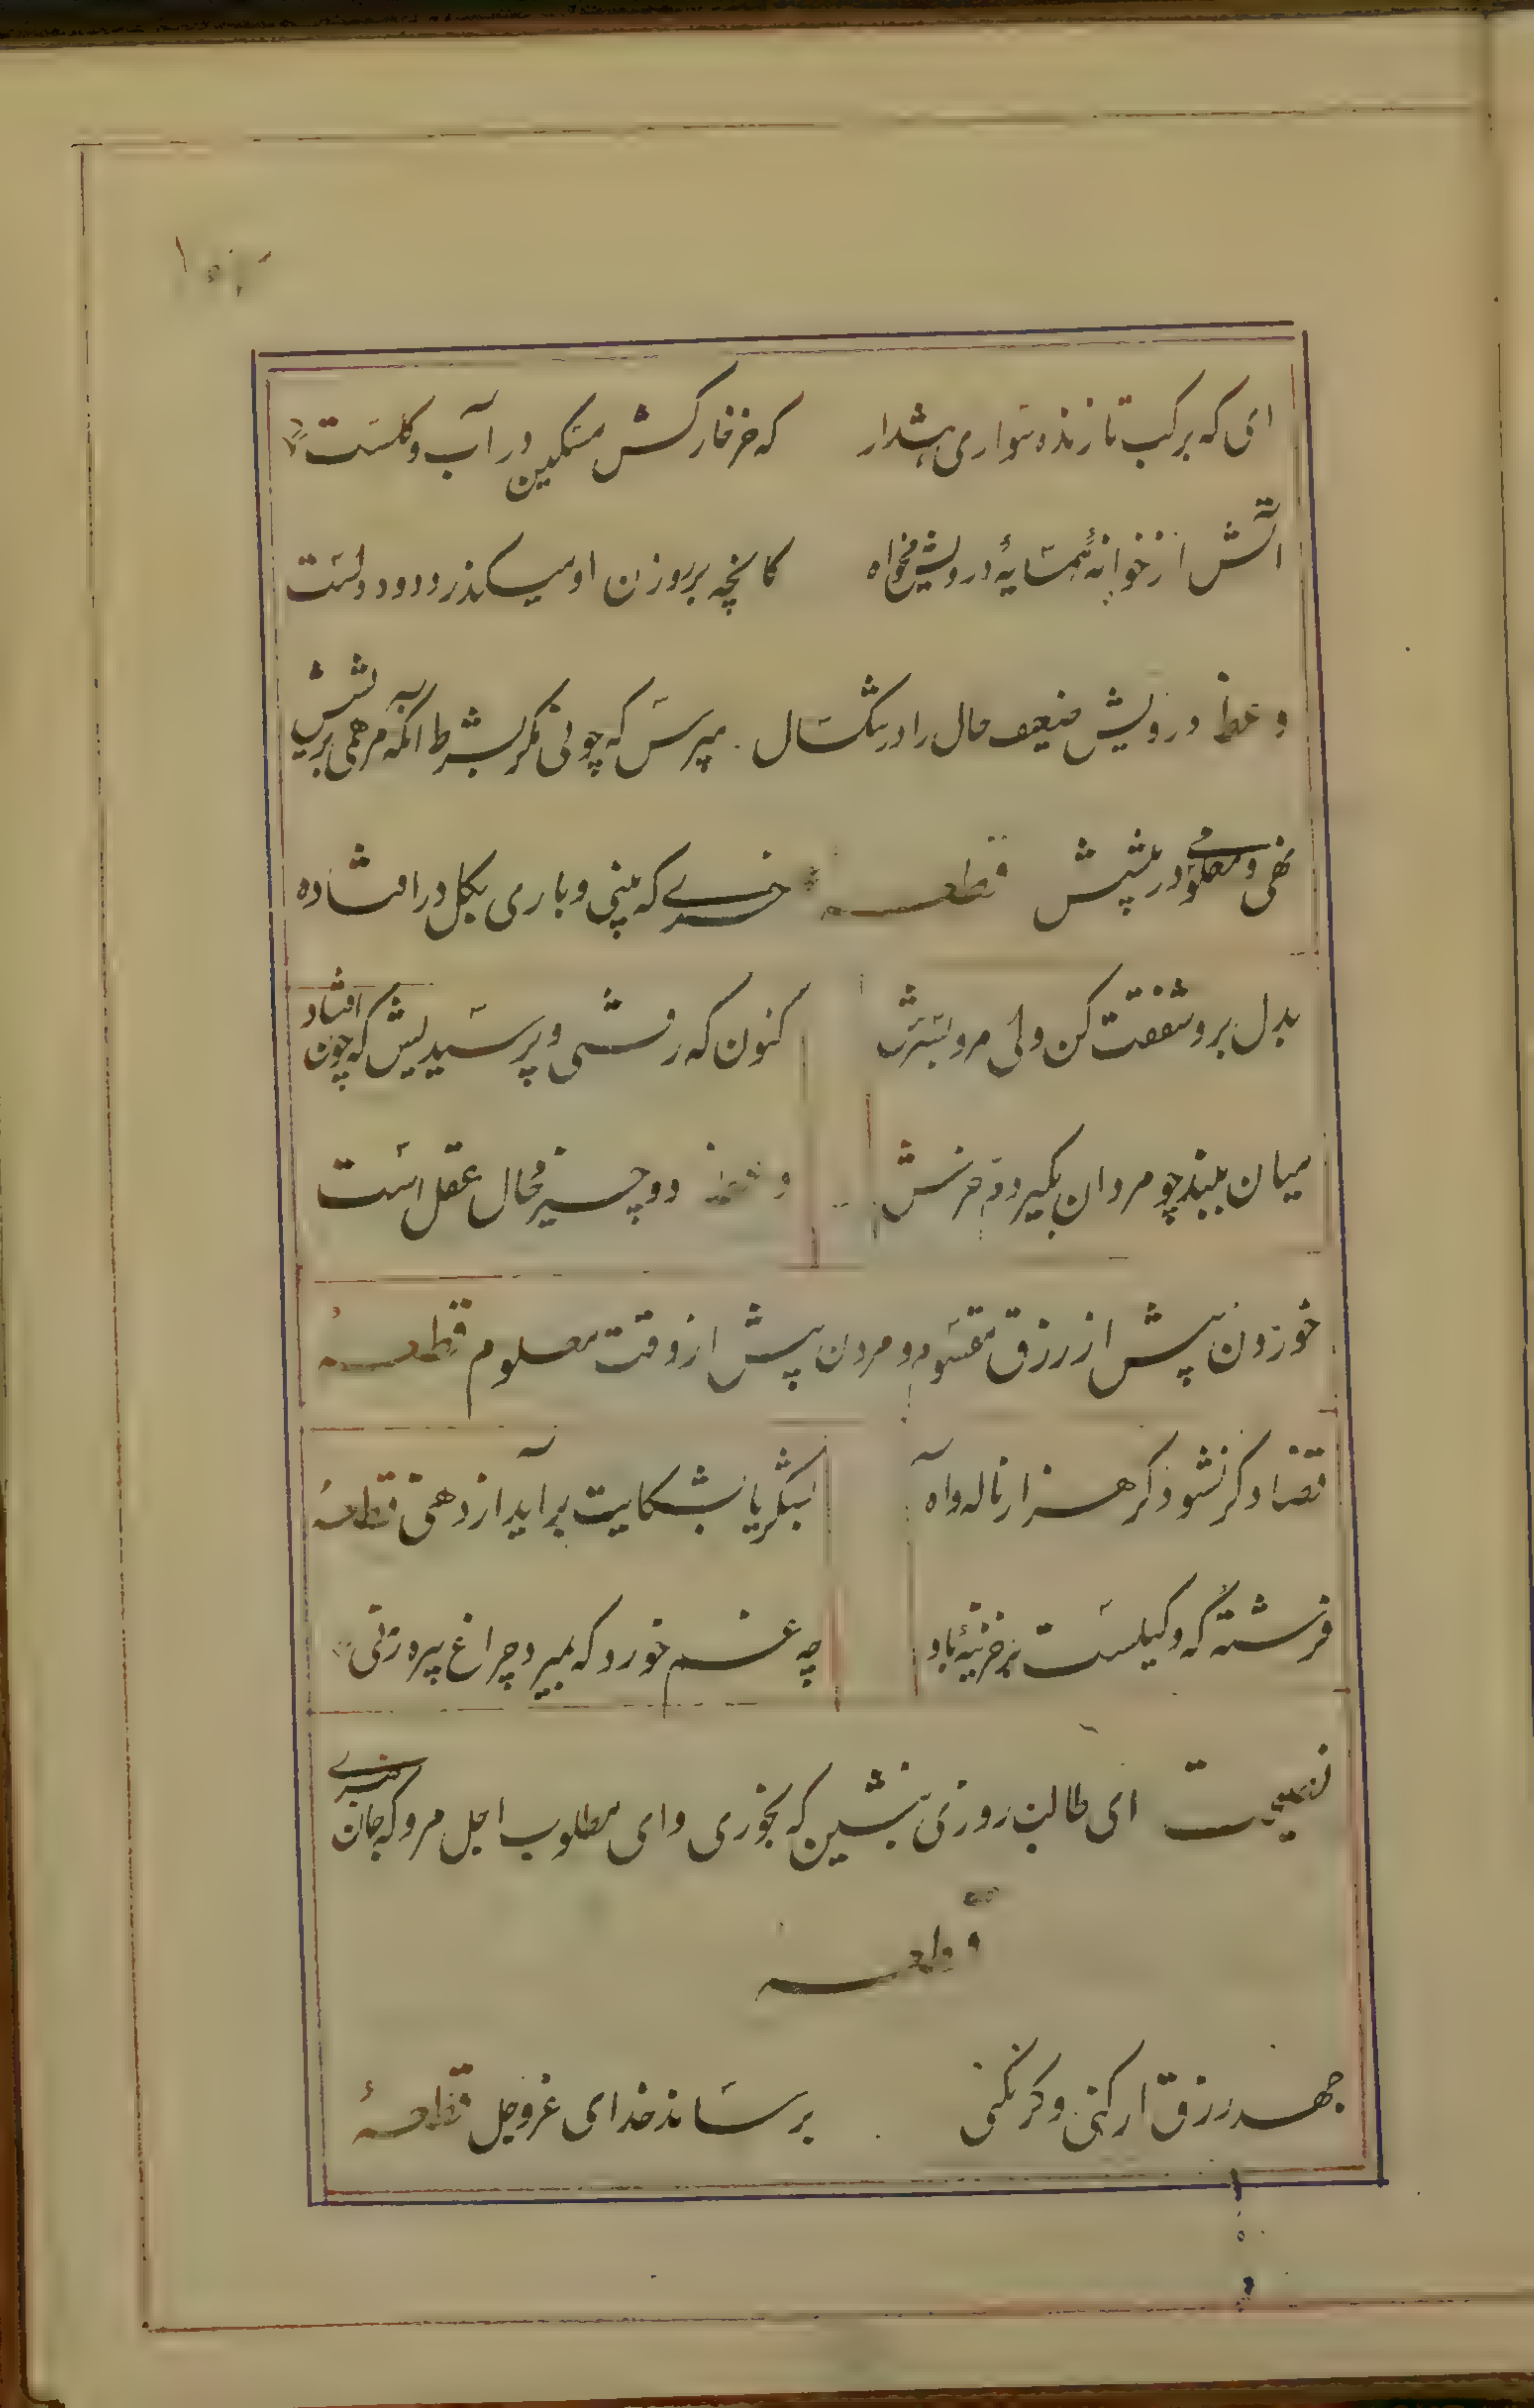 ای که برکب تازنده سواری هشدار که خر خارکش مسکین در آب و گلست
آتش از خوانهٔ همسایهٔ درویش مخواه کانچه بر روزن او میگذرد دود دلست
وعظ درویش ضعیف حال را در تنگسال مپرس که چونی مگر بشرط آنکه مرهمی بر ریشش
نهی و معلومے در پیشش قطعه خرے که بینی و باری بگل در افتاده
بدل برو شفقت کن ولی مرو بسرش کنون که رفتی و پرسیدیش که چون افتاد
میان ببند چو مردان بگیر دم خرش وعظ دو چیز محال عقل است
خوردن پیش از رزق مقسوم و مردن پیش از وقت معلوم قطعه
قضا دگر نشود گر هزار ناله و آه بشکر یا بشکایت برآید از دهنی قطعه
فرشته که وکیلست بر خزینهٔ باد چه غم خورد که بمیرد چراغ پیره زنی
نصیحت ای طالب روزی بنشین که بخوری وای مطلوب اجل مرو که جان نبرے
قطعه
جهد رزق ار کنی وگر نکنی برساند خدای عز و جل قطعهٔ